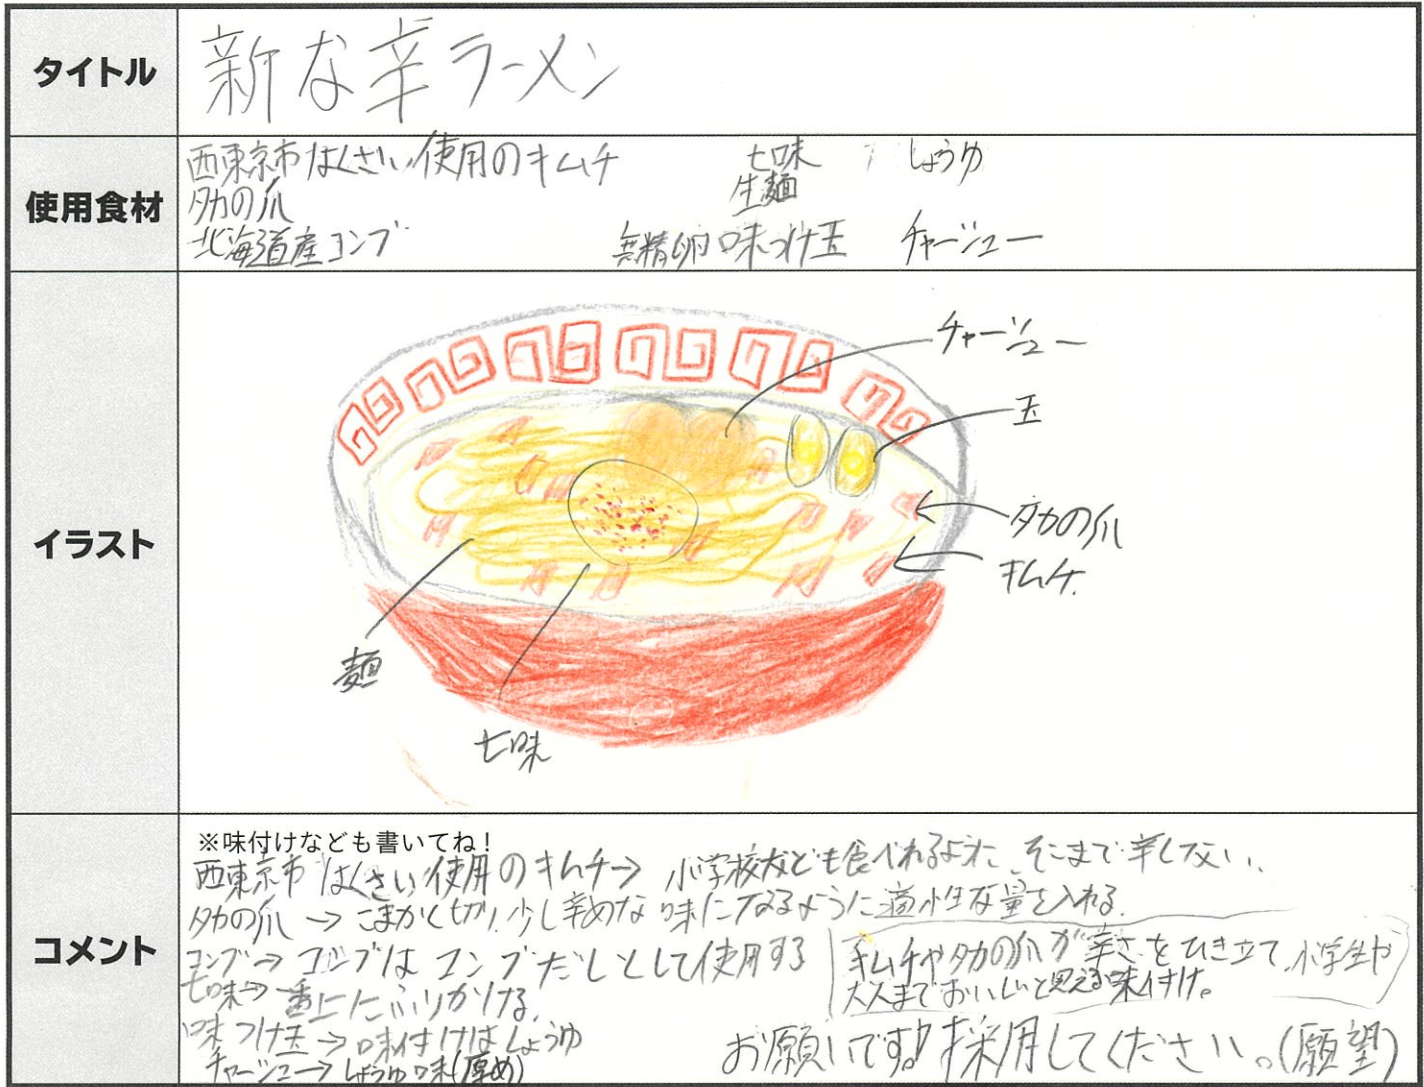 タイトル
新な辛ラーメン
使用食材
西東京市はくさい使用のキムチ 七味 しょうゆ
タカの爪 生麺
北海道産コンブ 無精卵味つけ玉 チャーシュー
イラスト
チャーシュー
玉
タカの爪
キムチ
麺
七味
コメント
※味付けなども書いてね!
西東京市はくさい使用のキムチ→ 小学校なども食べれるように、そこまで辛しない、
タカの爪→こまかく切り、少し辛めな味になるように適性な量を入れる。
コンブ→コンブはコンブだしとして使用する
七味→一番上にふりかける。
味つけ玉→味付けはしょうゆ
チャーシュー→しょうゆ味(厚め)
キムチやタカの爪が辛さをひき立て、小学生や
大人までおいしいと思える味付け。
お願いです!採用してください。(願望)